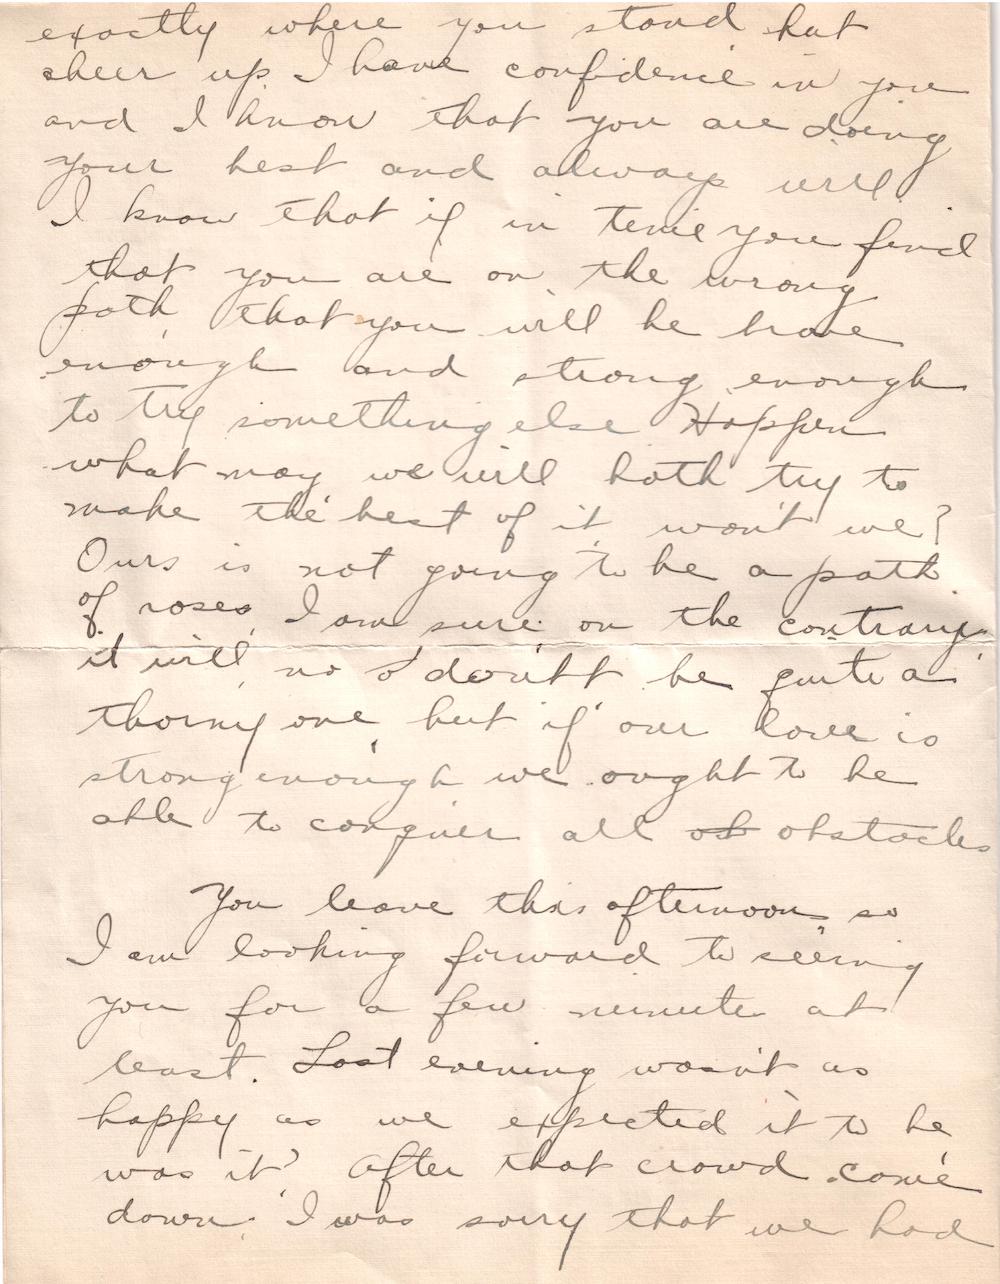 exactly where you stand but
cheer up I have confidence in you
and I know that you are doing
your best and always will
I know that if in time you find
that you are on the wrong
path, that you will be brave
enough and strong enough
to try something else Happen
what may we will both try to
make the best of it, won't we?
Ours is not going to be a path
of roses, I am sure on the contrary,
it will, no doubt be quite a
thorny one, but if our love is
strong enough we ought to be
able to conquer all ob obstacles
You leave this afternoon, so
I am looking forward to seeing
you for a few minute at
least. Last evening wasn't as
happy as we expected it to be
was it? After that crowd came
down. I was sorry that we had